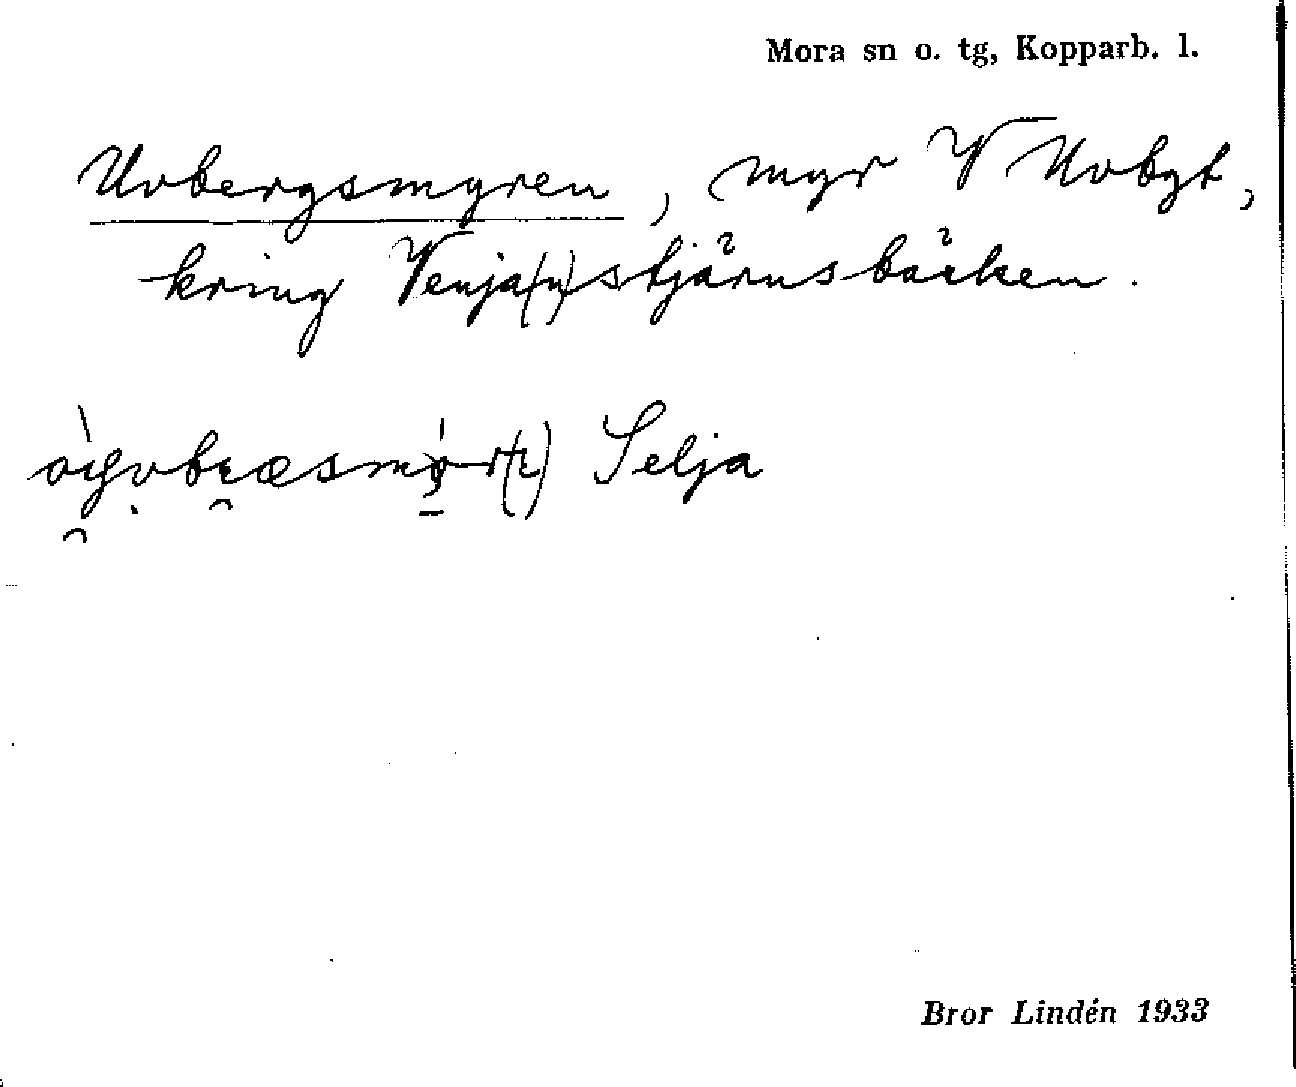 Mora sn o. tg, Kopparb. l.
Uvbergsmyren, myr V Uvbgt,
kring Venja(n)stjärnsbäcken.
Selja
Bror Lindén 1933